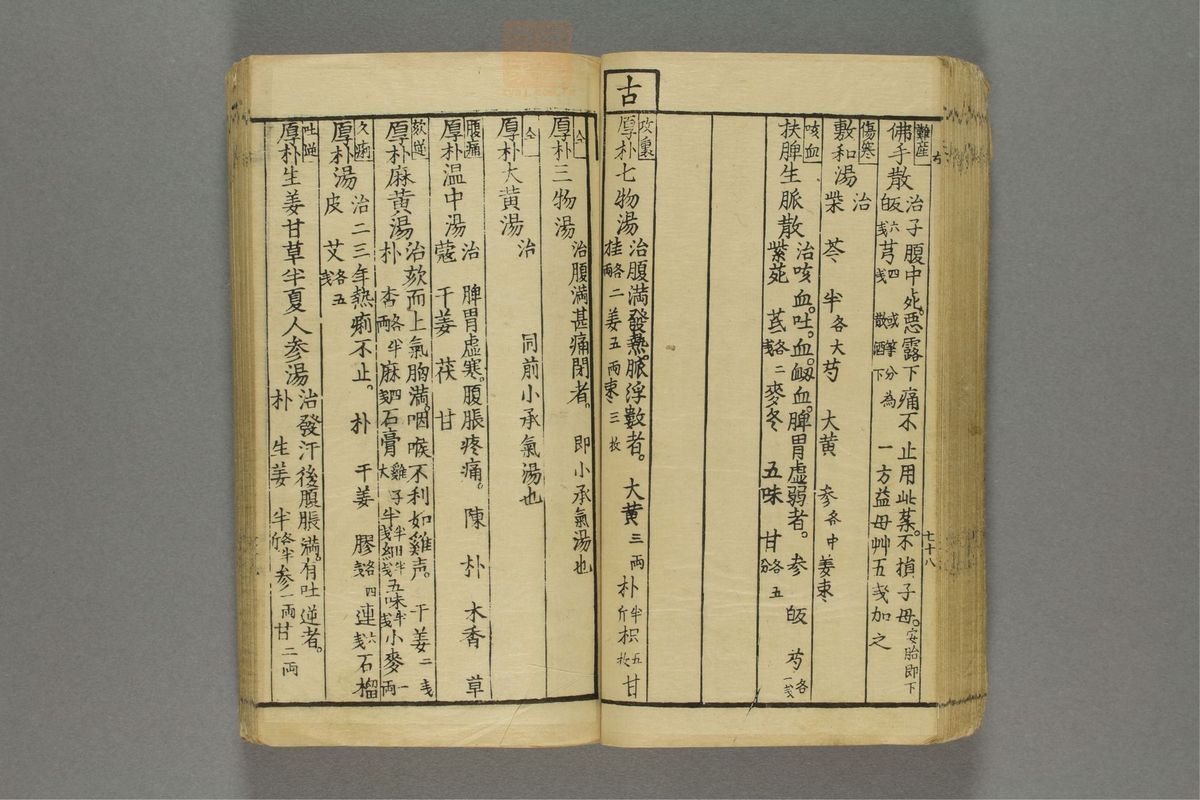 難産
佛手散
治子腹中死惡露下痛不止用此藥不損子母安胎即下
皈六戔芎四戔 或等分為散酒下 一方益母艸五戔加之
七十八
傷寒
敷和湯
治
柴 芩 半各大芍 大黄 参各中姜棗
咳血
扶脾生脈散
治咳血吐血衂血脾胃虚弱者 参 皈 芍各一戔
紫菀 芪各二戔麥冬 五味 甘各五分
古
攻裏
厚朴七物湯
治腹満發熱脈浮數者 大黄三両朴半斤枳五枚甘
桂各二両姜五両棗三枚
仝
厚朴三物湯
治腹満甚痛閉者 即小承氣湯也
仝
厚朴大黄湯
治 同前小承氣湯也
腹痛
厚朴温中湯
治脾胃虚寒腹脹疼痛 陳 朴 木香 草
蔻 干姜 茯 甘
欬逆
厚朴麻黄湯
治欬而上氣胸満咽喉不利如雞声 干姜二戔
朴 杏各半両麻四戔石膏雞子大半半戔細半戔五味半戔小麥一両
久痢
厚朴湯
治二三年熱痢不止 朴 干姜 膠各四戔連六戔石榴
皮 艾各五戔
吐逆
厚朴生姜甘草半夏人参湯
治發汗後腹脹満有吐逆者
朴 生姜 半各半斤参一両甘二両